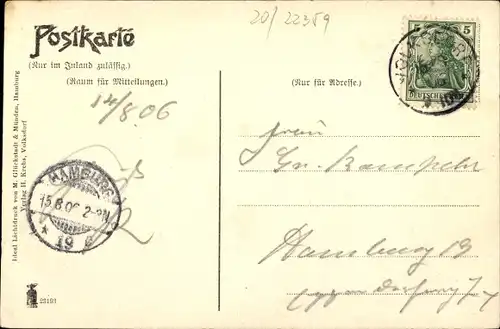 20/22359
Postkarte
(Nur im Inland zulässig.)
(Raum für Mitteilungen.)
(Nur für Adresse.)
5 5
DEUTSCHES
14/8 06
HAMBURG
15.8.06. 2-3N
* 19
Frau
Hamburg 19
Ideal Lichtdruck von M. Glückstadt & Münden, Hamburg
Verlag H. Krebs, Volksdorf
23193